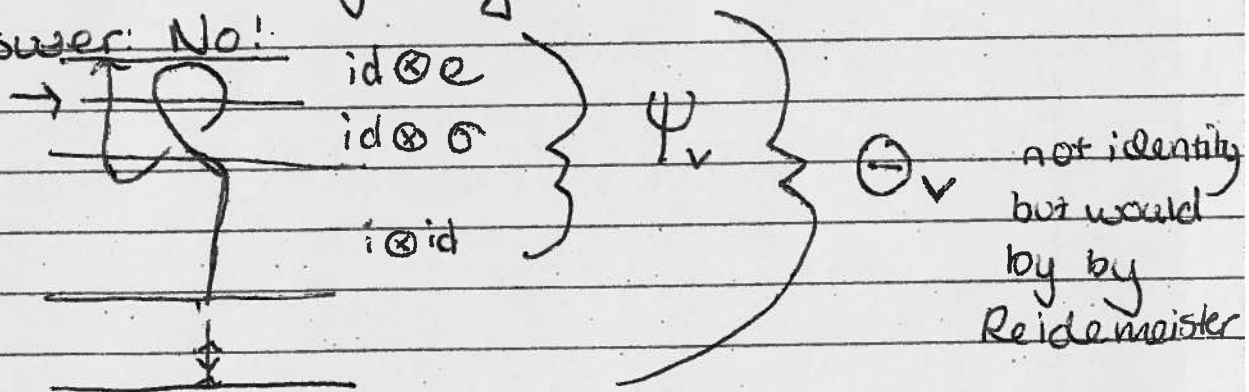 Answer: No!
id ⊗ e
id ⊗ σ
i ⊗ id
Ψ_V
Θ_V
not identity
but would
by by
Reidemeister